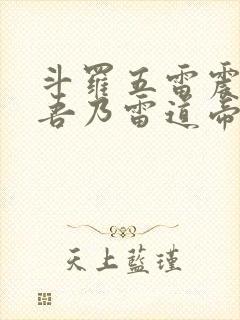 斗羅五雷震
吾乃雷道帝
天上藍瑾